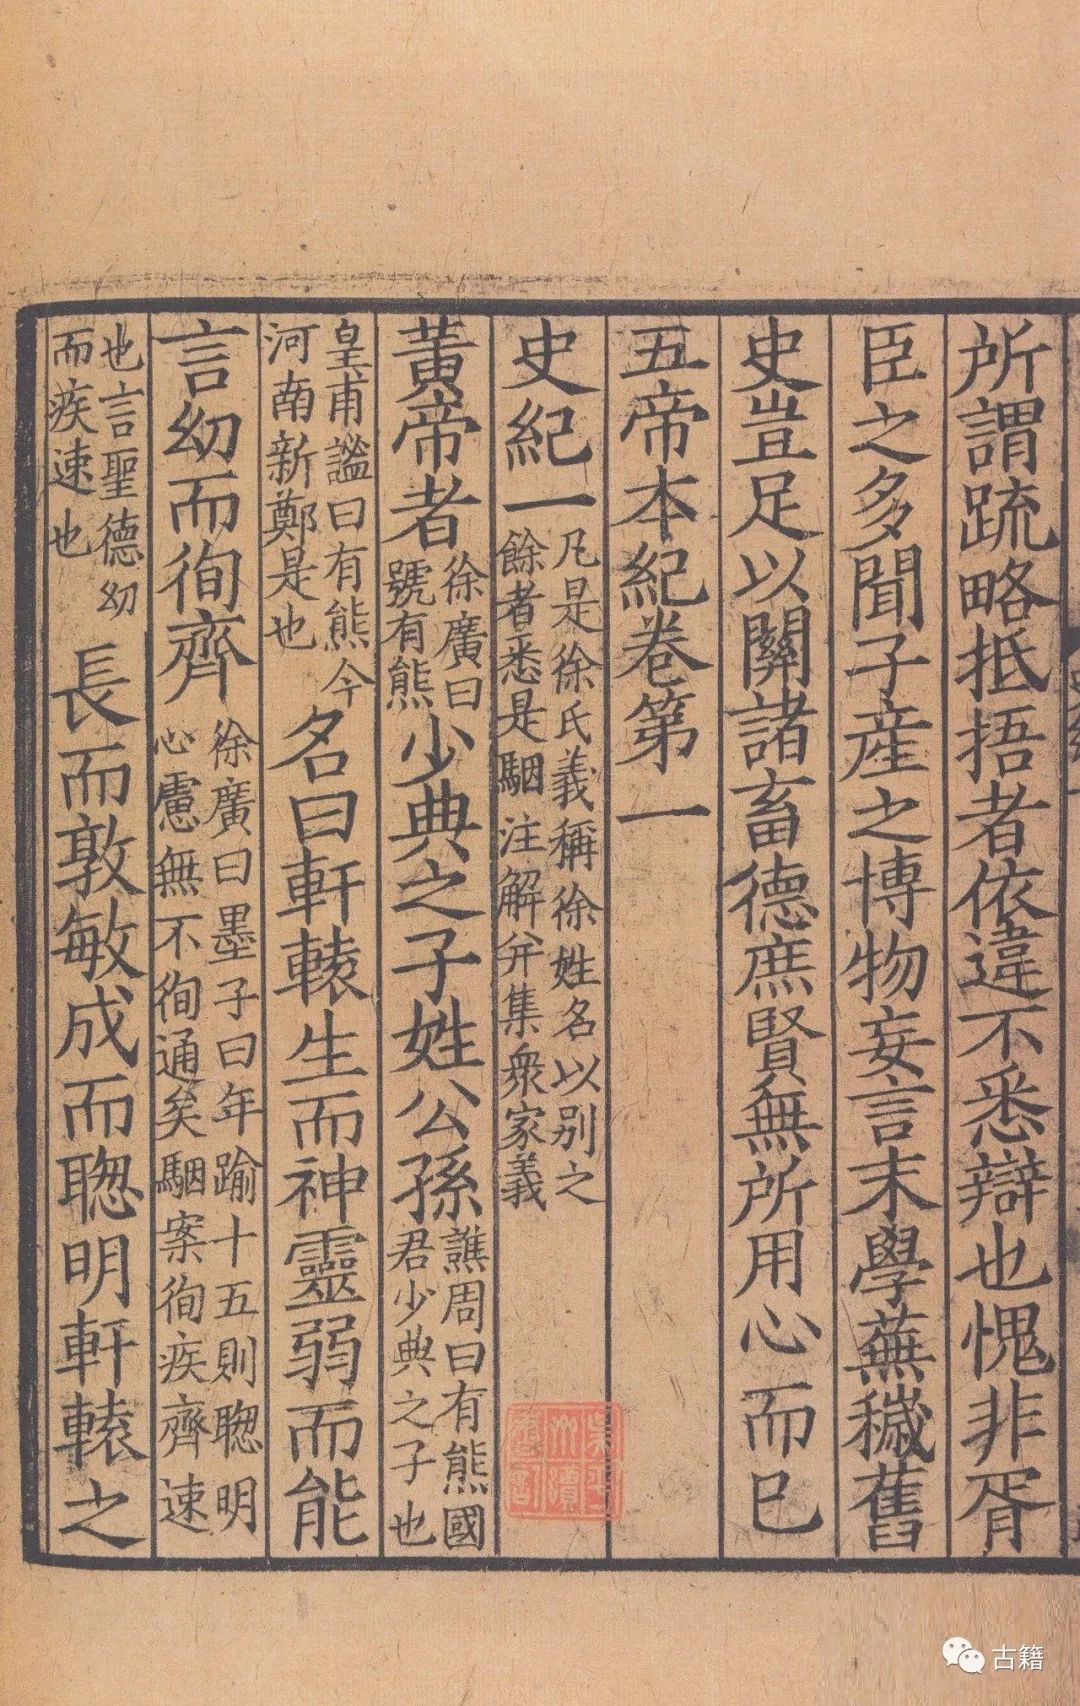 所謂䟽略抵捂者依違不悉辯也愧非胥
臣之多聞子産之博物妄言末學蕪穢舊
史豈足以關諸畜德庶賢無所用心而已
五帝本紀卷第一
史紀一
凡是徐氏義稱徐姓名以别之
餘者悉是駰注解并集衆家義
黃帝者
徐廣曰
號有熊
少典之子姓公孫
譙周曰有熊國
君少典之子也
皇甫謐曰有熊今
河南新鄭是也
名曰軒轅生而神靈弱而能
言幼而徇齊
徐廣曰墨子曰年踰十五則聦明
心慮無不徇通矣駰案徇疾齊速
也言聖德幼
而疾速也
長而敦敏成而聦明軒轅之
古籍